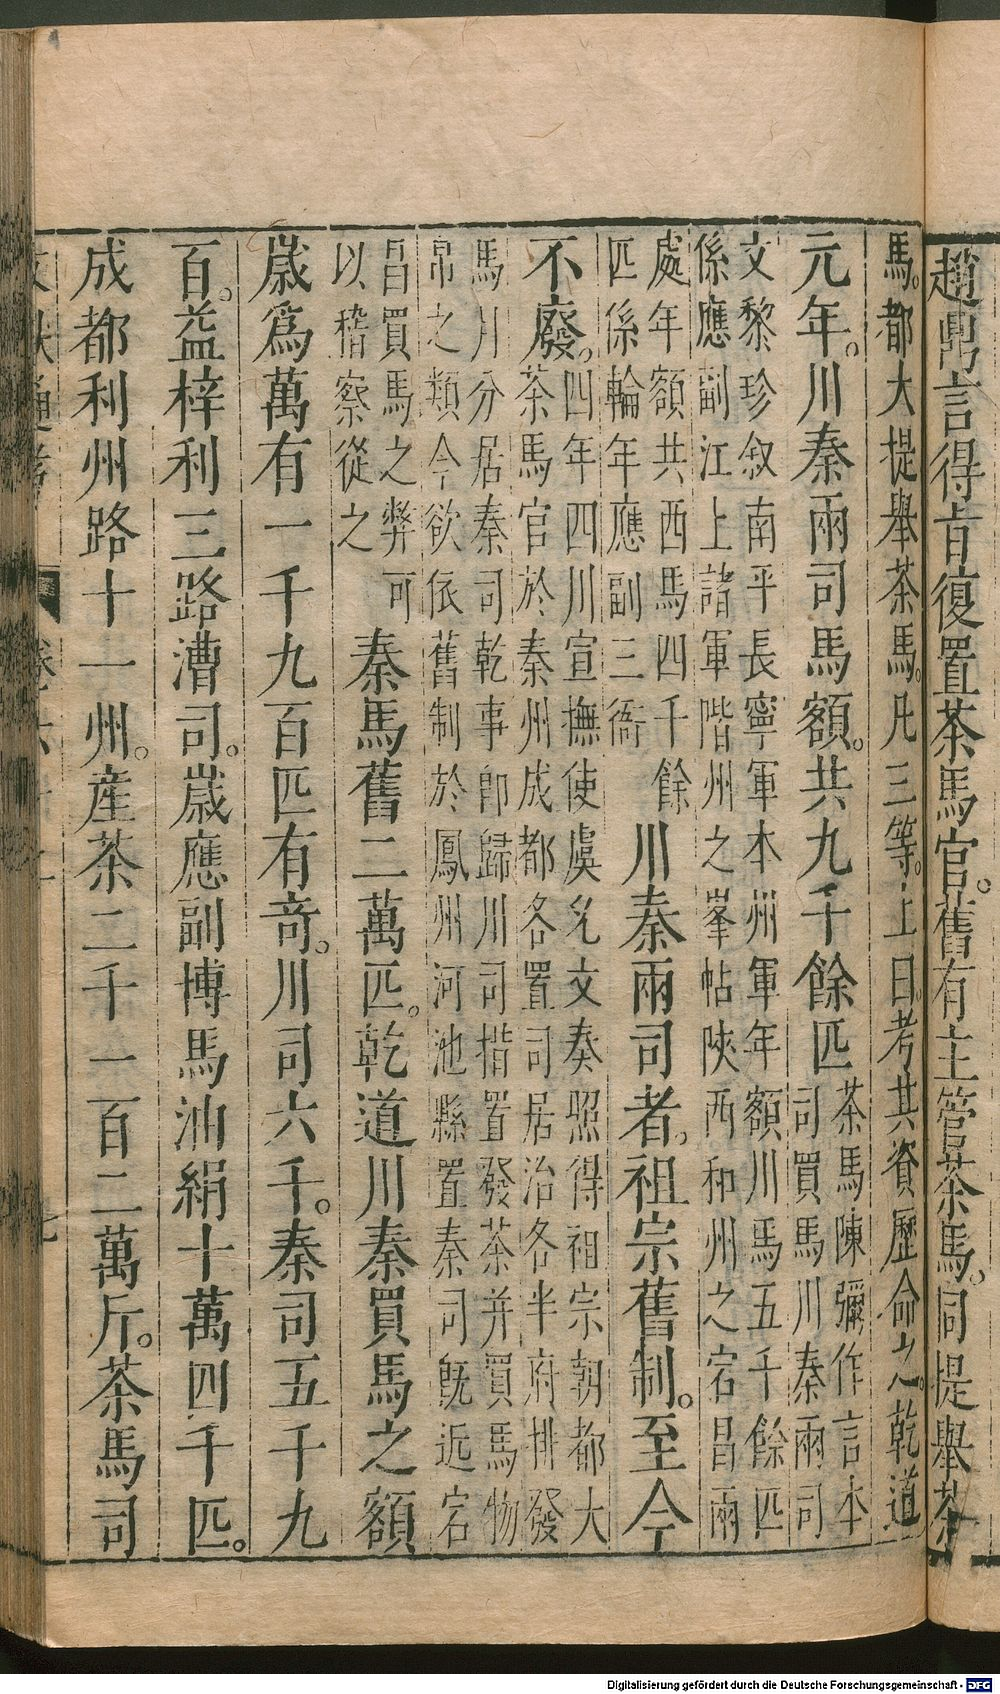 趙鼎言得旨復置茶馬官。舊有主管茶馬。同提舉茶
馬。都大提舉茶馬。凡三等。上曰。考其資歷命之。乾道
元年。川秦兩司馬額。共九千餘匹
茶馬陳彌作言本
司買馬川秦兩司
文黎珍叙南平長寧軍本州軍年額川馬五千餘匹
係應副江上諸軍階州之峯帖陜西和州之宕昌兩
處年額共西馬四千餘
匹係輪年應副三衙
川秦兩司者。祖宗舊制。至今
不廢。
四年四川宣撫使虞允文奏照得祖宗朝都大
茶馬官於秦州成都各置司居治各半府排發
馬川分居秦司乾事卽歸川司措置發茶并買馬物
帛之類今欲依舊制於鳳州河池縣置秦司旣近宕
昌買馬之弊可
以稽察從之
秦馬舊二萬匹。乾道川秦買馬之額
歲爲萬有一千九百匹有奇。川司六千。秦司五千九
百。益梓利三路漕司。歲應副博馬油絹十萬四千匹。
成都利州路十一州。產茶二千一百二萬斤。茶馬司
Digitalisierung gefördert durch die Deutsche Forschungsgemeinschaft - DFG